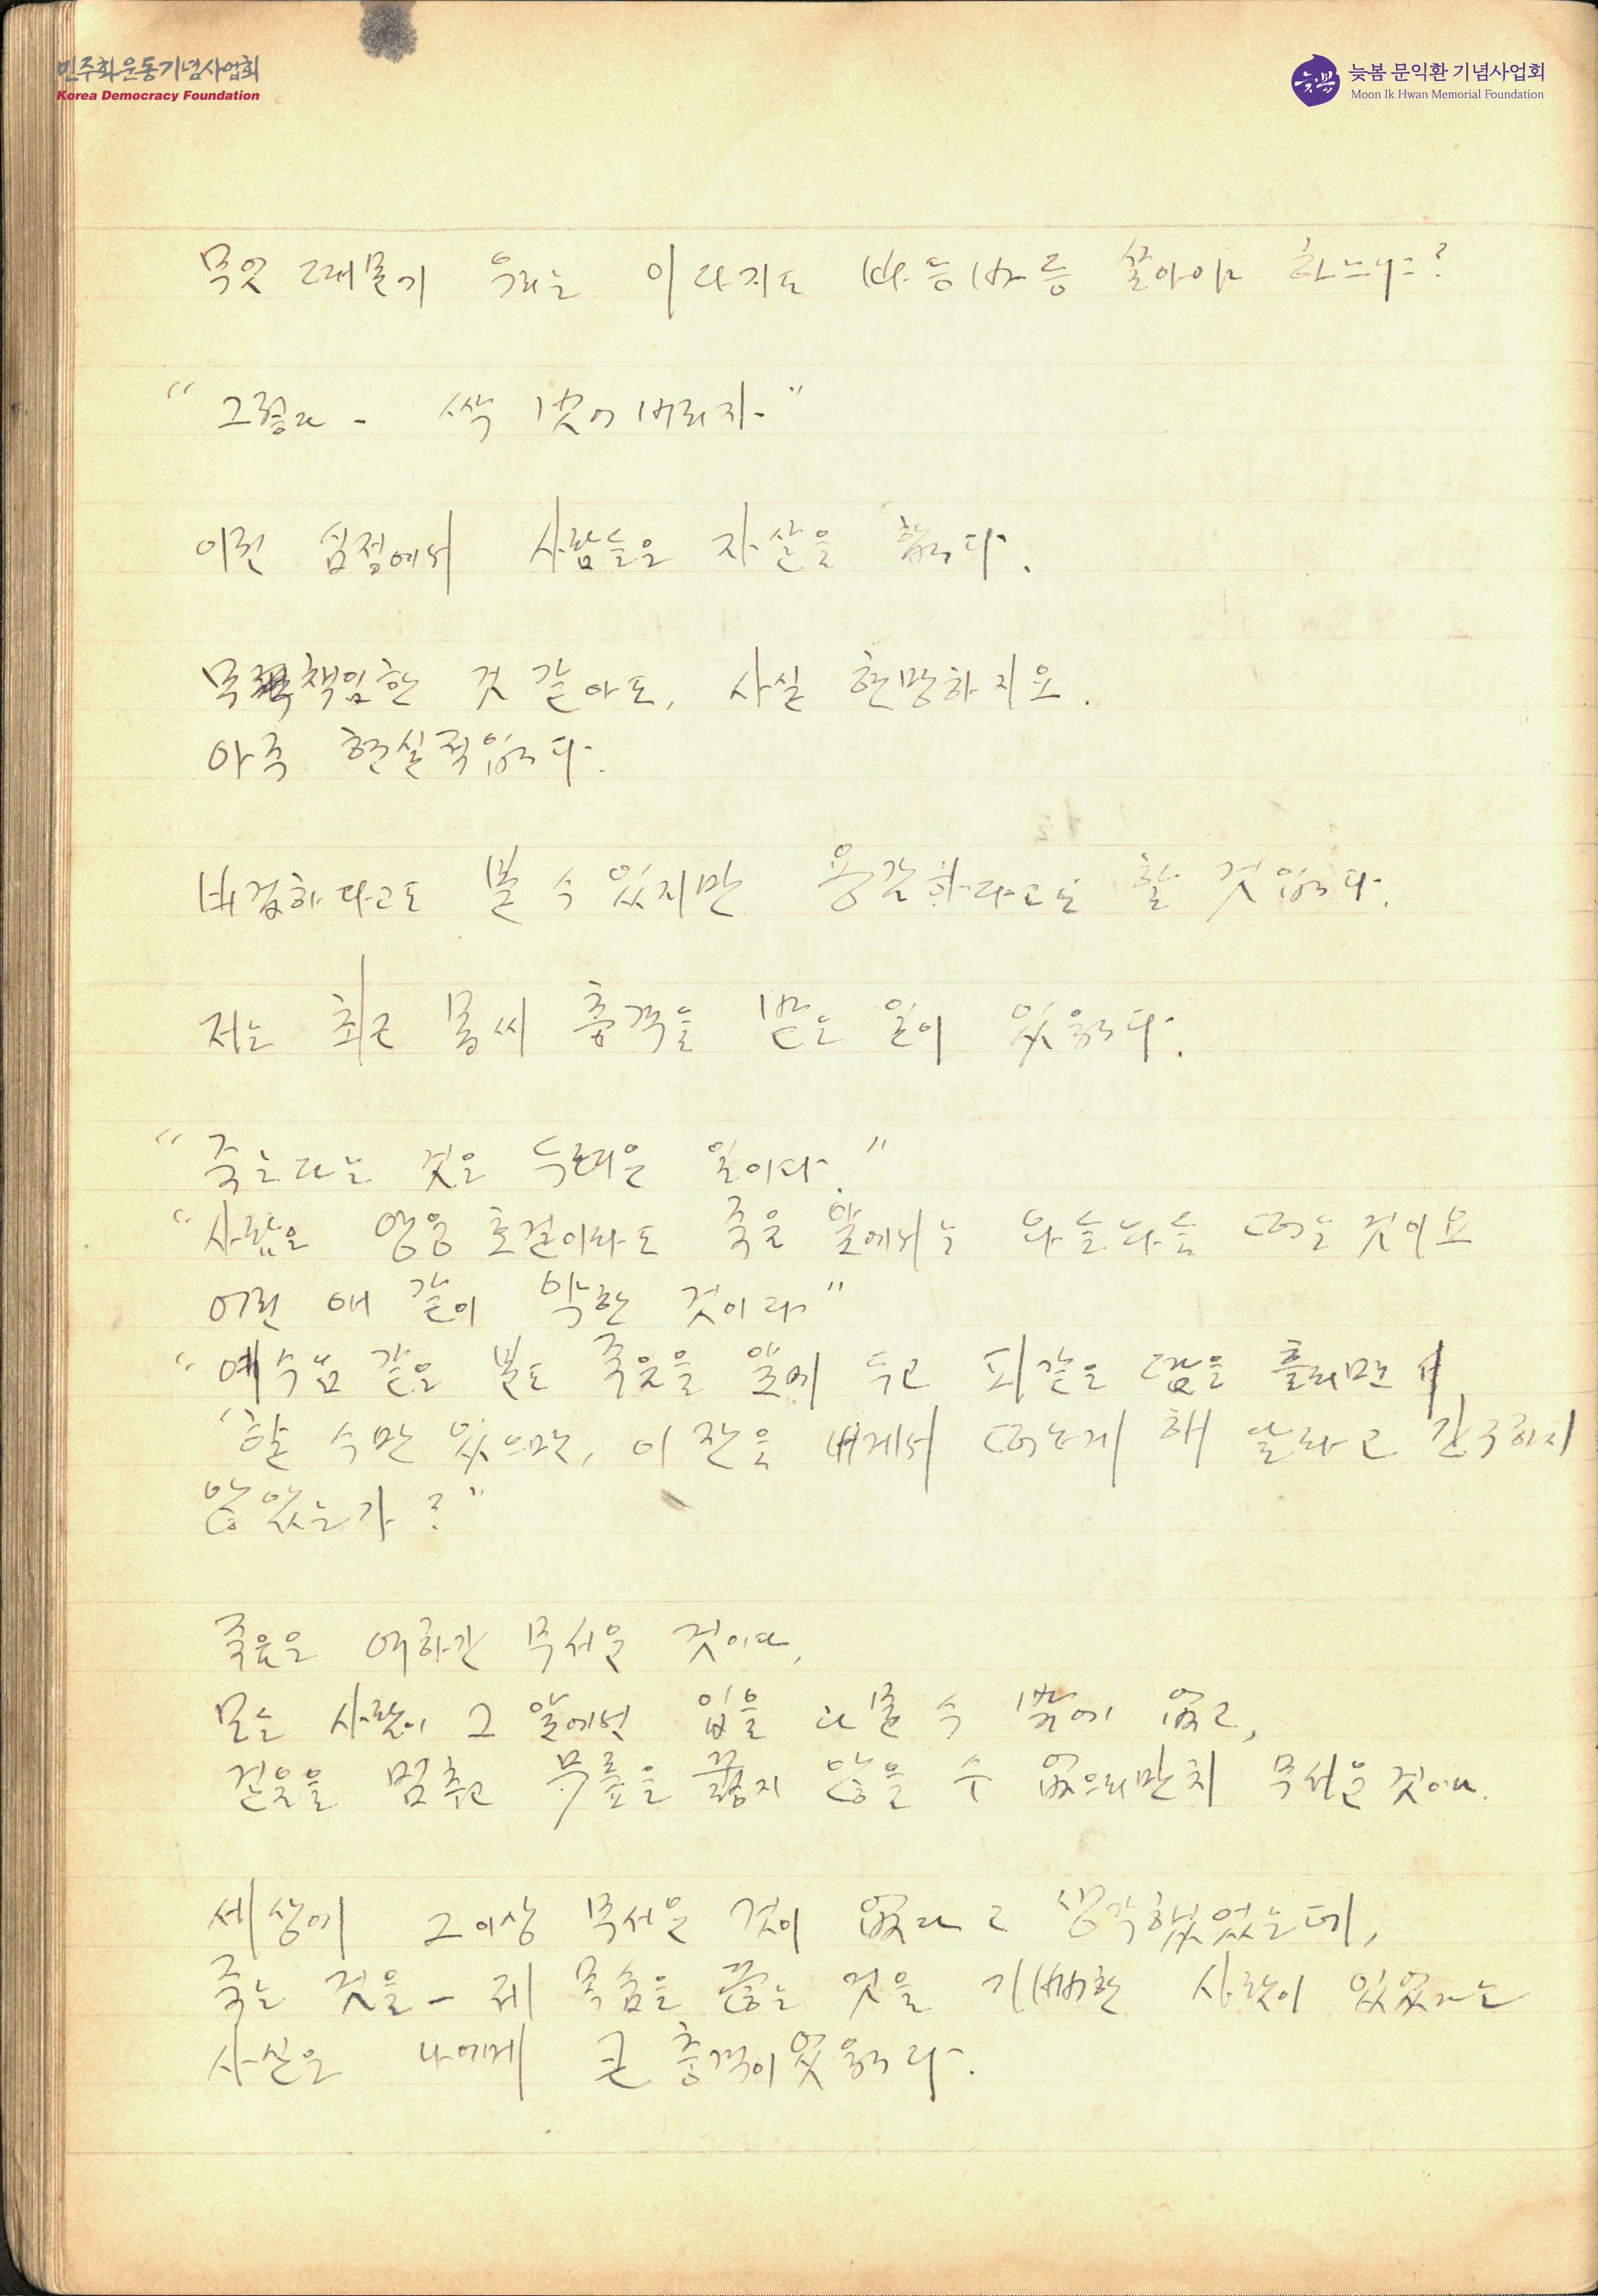 민주화운동기념사업회
Korea Democracy Foundation
늦봄 문익환 기념사업회
Moon Ik Hwan Memorial Foundation
무엇 때문에 우리는 이다지도 바등바등 살아야 하느냐?
"그렇다 - 싹 벗어버리자"
이런 심정에서 사람들은 자살을 합니다.
무책임한 것 같아도, 사실 현명하지요.
아주 현실적입니다.
비겁하다고도 볼 수 있지만 용감하다고도 할 것입니다.
저는 최근 몹씨 충격을 받은 일이 있읍니다.
"죽는다는 것은 두려운 일이다."
"사람은 영웅 호걸이라도 죽음 앞에서는 와들와들 떠는 것이오
어린 애 같이 약한 것이다"
"예수님 같은 분도 죽음을 앞에 두고 피같은 땀을 흘리면서
'할 수만 있으면, 이 잔을 내게서 떠나게 해 달라고 간구하지
않았는가?"
죽음은 여하간 무서운 것이다,
모든 사람이 그 앞에선 입을 다물 수 밖에 없고,
걸음을 멈추고 무릎을 꿇지 않을 수 없으리만치 무서운 것이다.
세상에 그 이상 무서운 것이 없다고 생각했었는데,
죽는 것을 - 제 목숨을 끊는 것을 기뻐한 사람이 있었다는
사실은 나에게 큰 충격이었읍니다.